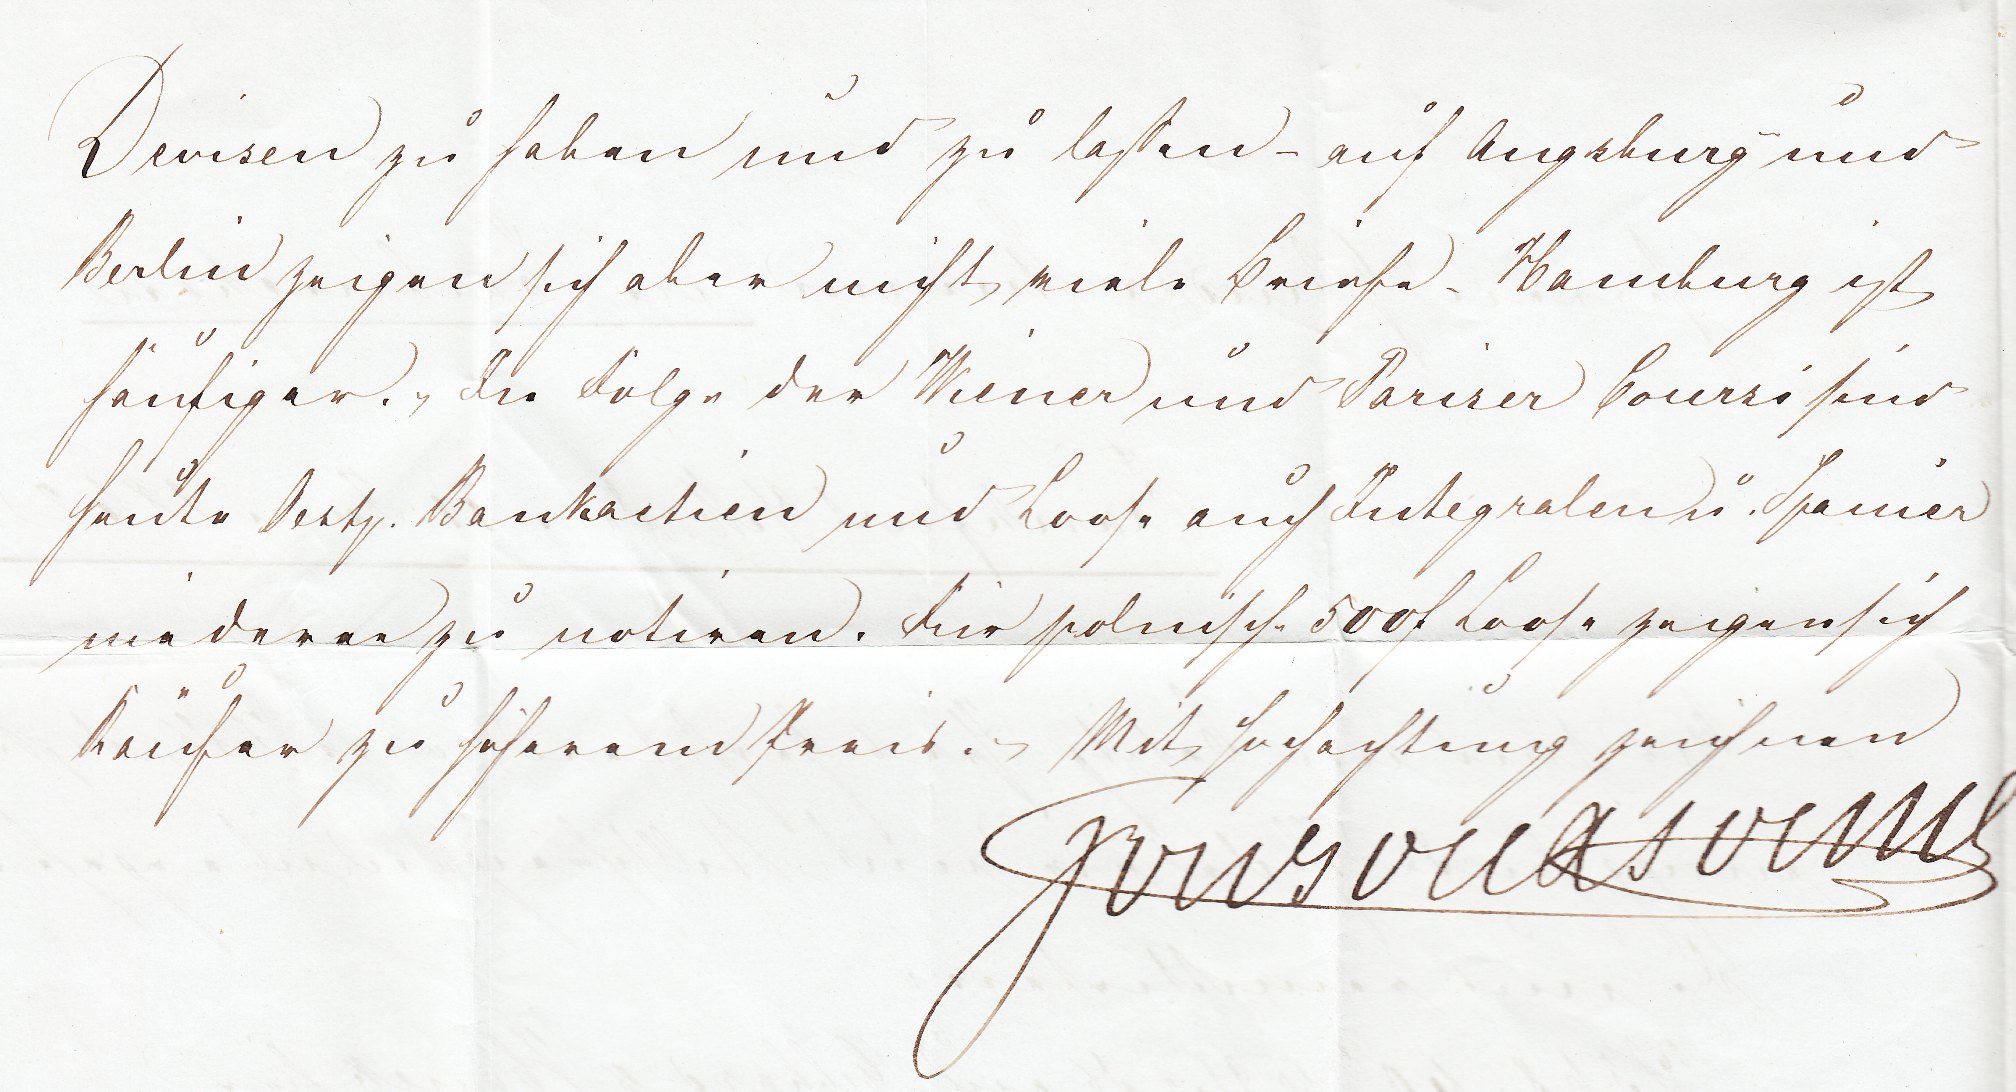 Devisen zu haben und zu lassen – auf Augsburg und
Berlin zeigen sich aber nicht viele Briefe – Hamburg ist
häufiger. – In Folge der Wiener und Pariser Course sind
heute Oestr. Bankactien und Loose auch Integralen u. Spanier
niederer zu notiren. Für polnische 500f Loose zeigen sich
Käufer zu höherem Preis. – Mit Hochachtung zeichnen